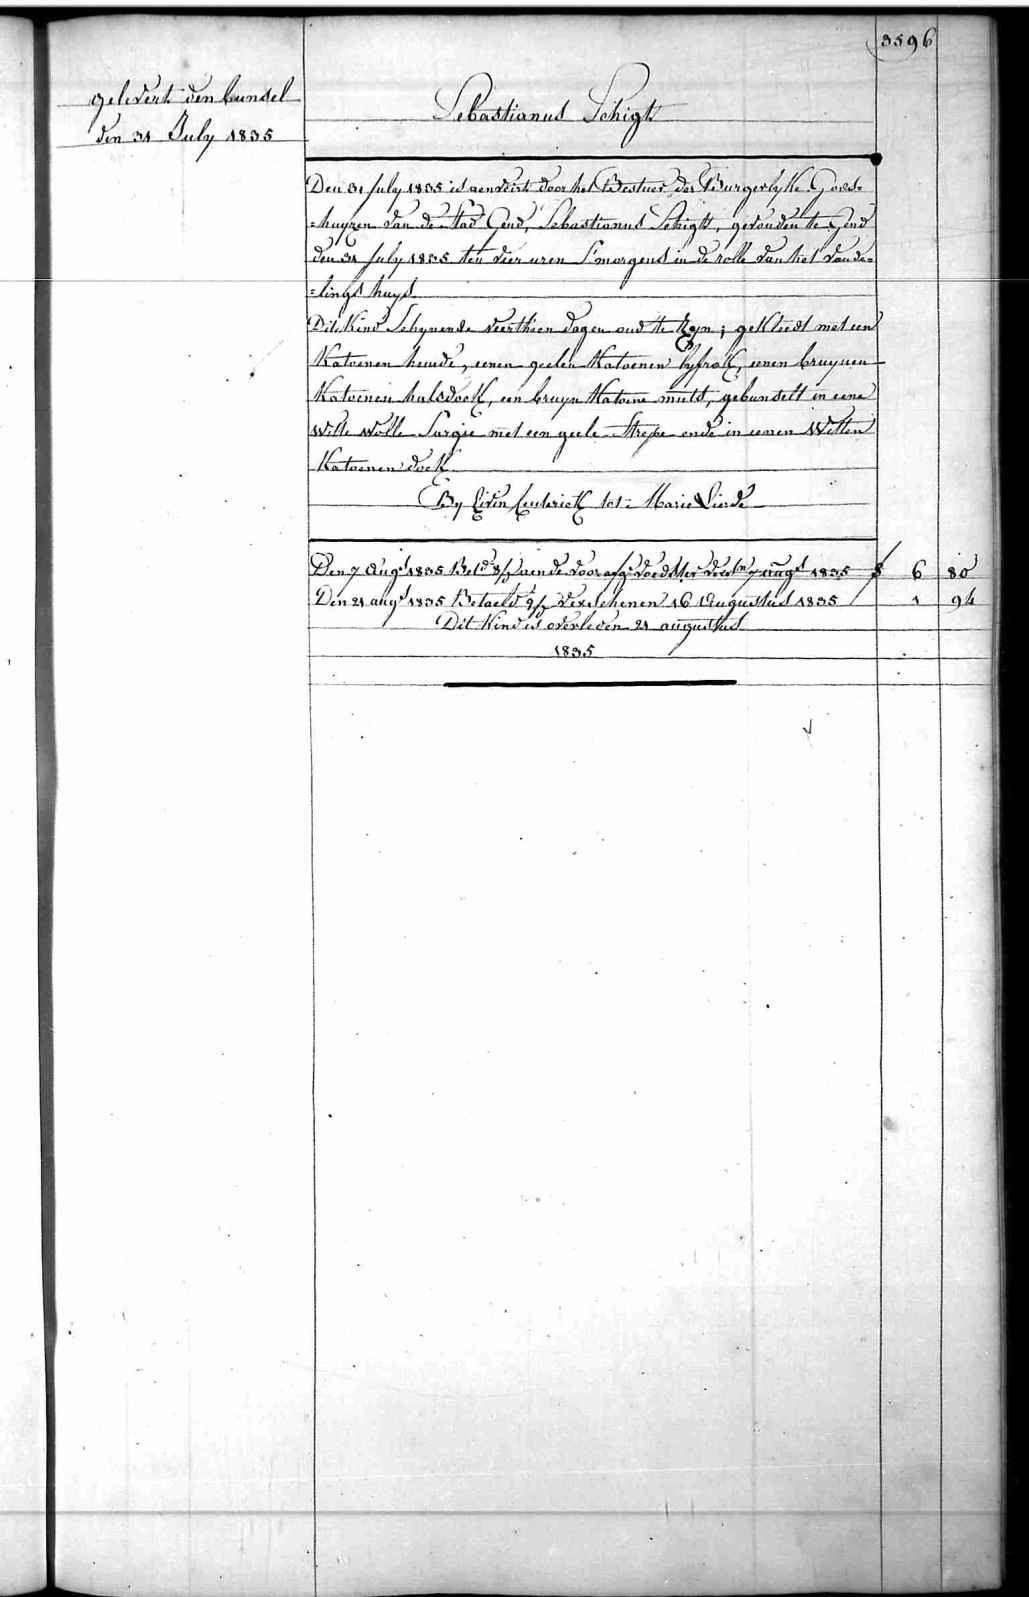 3596
gelevert den bunsel
den 31 July 1835
Sebastianus Schigt
Den 31 July 1835 is aenveirt door het Bestuer der Burgerlyke Gods=
=huyzen van de stad Gend, Sebastianus Schigt, gevonden te Gend
den 31 July 1835 ten vier uren S'morgens in de rolle van het vonde=
=lings huys.
Dit Kind Schynende veerthien dagen oud te Zyn; gekleedt met een
Katoenen hemde, eenen geelen Katoenen lyfrok, eenen bruynen
Katoenen halsdoek, een bruyn Katoene muts, gebunselt in eene
Witte Wolle Sargie met een geele Strepe ende in eenen Witten
Katoenen doek
By Livin tot Marie Lierde
Den 7 Augt 1835 Betd aen de voedster 7 augt 1835 6 80
Den 21 augt 1835 Betaeld verschenen 16 Augustus 1835 1 94
Dit Kind is overleden 21 augustus
1835